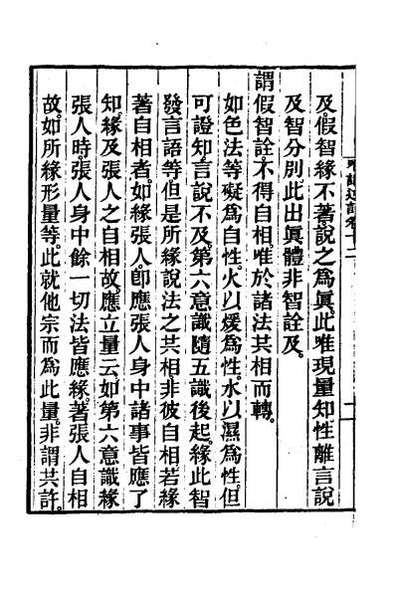 及。假智緣不著。說之為真。此唯現量知。性離言說
及智分別。此出真體非智詮及。
謂假智詮。不得自相。唯於諸法共相而轉。
如色法等礙為自性。火以煖為性。水以濕為性。但
可證知。言說不及。第六意識隨五識後起。緣此智
發言語等。但是所緣說法之共相。非彼自相。若緣
著自相者。如緣張人。即應張人身中諸事皆應了
知。緣及張人之自相故。應立量云。如第六意識緣
張人時。張人身中餘一切法皆應緣。著張人自相
故。如所緣形量等。此就他宗而為此量。非謂共許。